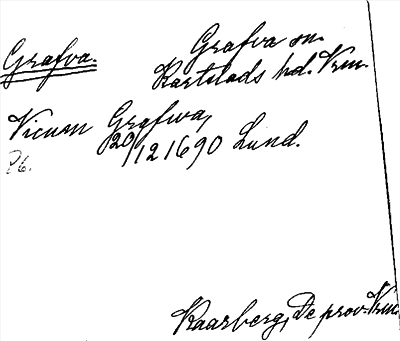 Grafva.
Grafva sn.
Karlstads hd. Vrm.
Vicum Grafwa,
20/12 1690 Lund.
Kaarberg, De prov. Vrm.